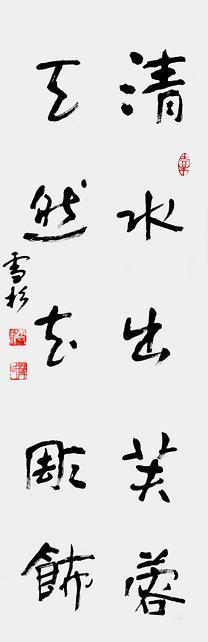 清水出芙蓉
天然去彫飾
雪杉